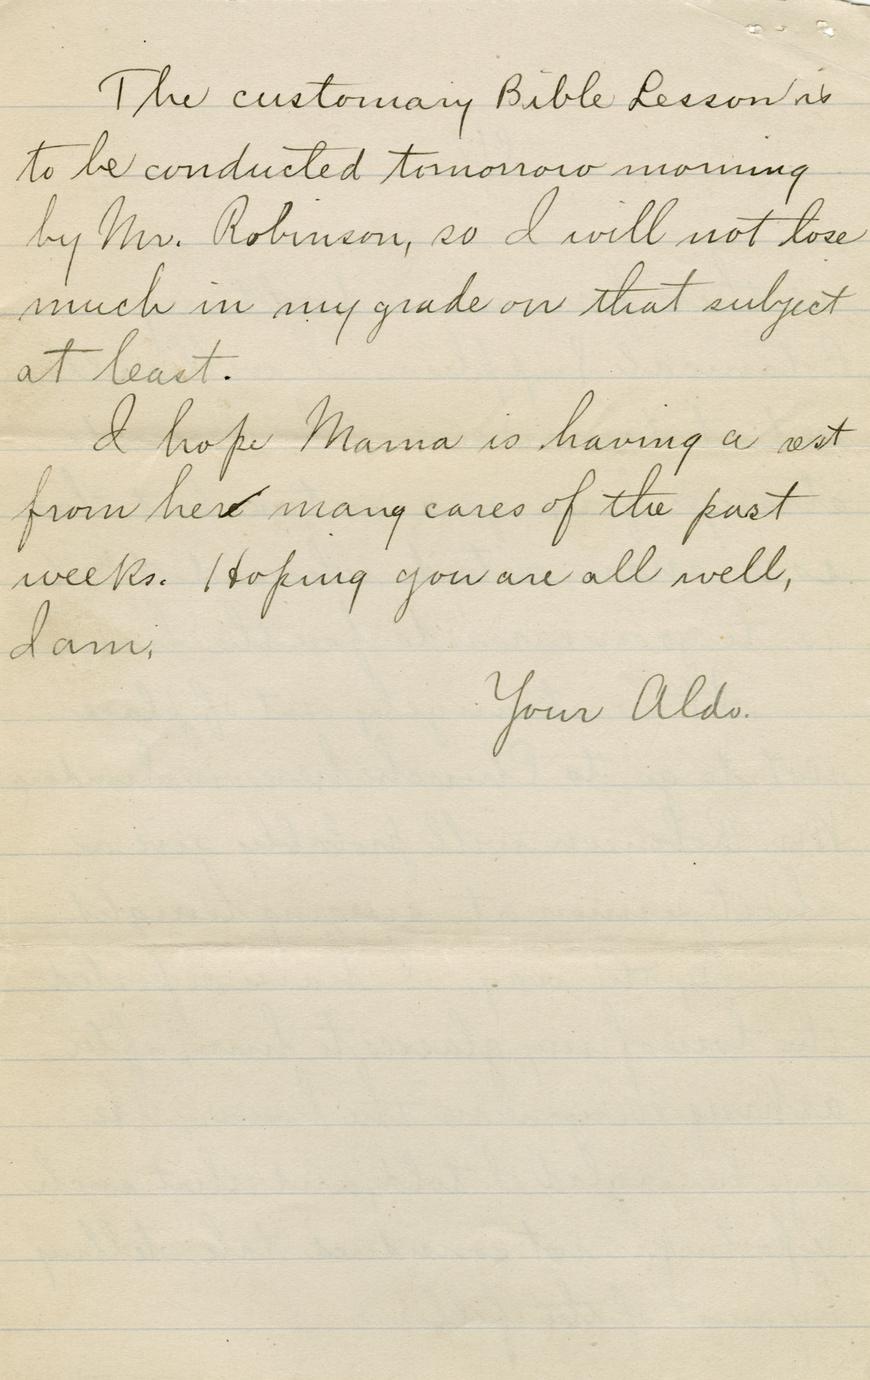 The customary Bible Lesson is
to be conducted tomorrow morning
by Mr. Robinson, so I will not lose
much in my grade on that subject
at least.
I hope Mama is having a rest
from her many cares of the past
weeks. Hoping you are all well,
I am,
Your Aldo.